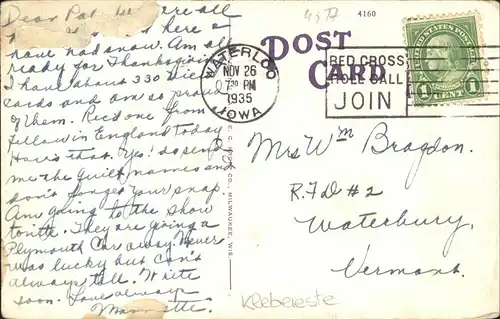 Dear Pal are all
here a
have had snow. Am all
ready for Thanksgiving
I have about 330 view
cards and am so proud
of them. Rec'd one from
fellow in England today
How's that. Yes! do send
me the quilt names and
don't forget your snap.
Am going to the show
tonite. They are giving a
Plymouth Car away never
was lucky but can't
always tell. Write
soon. Love always
4160
POST
CARD
WATERLOO
NOV 26
7 30 PM
1935
IOWA
RED CROSS
ROLL CALL
JOIN
UNITED STATES POSTAGE
1 CENT 1
CO., MILWAUKEE, WIS.
Mrs Wm Bragdon.
R.F.D #2
Waterbury,
Vermont.
Klebereste